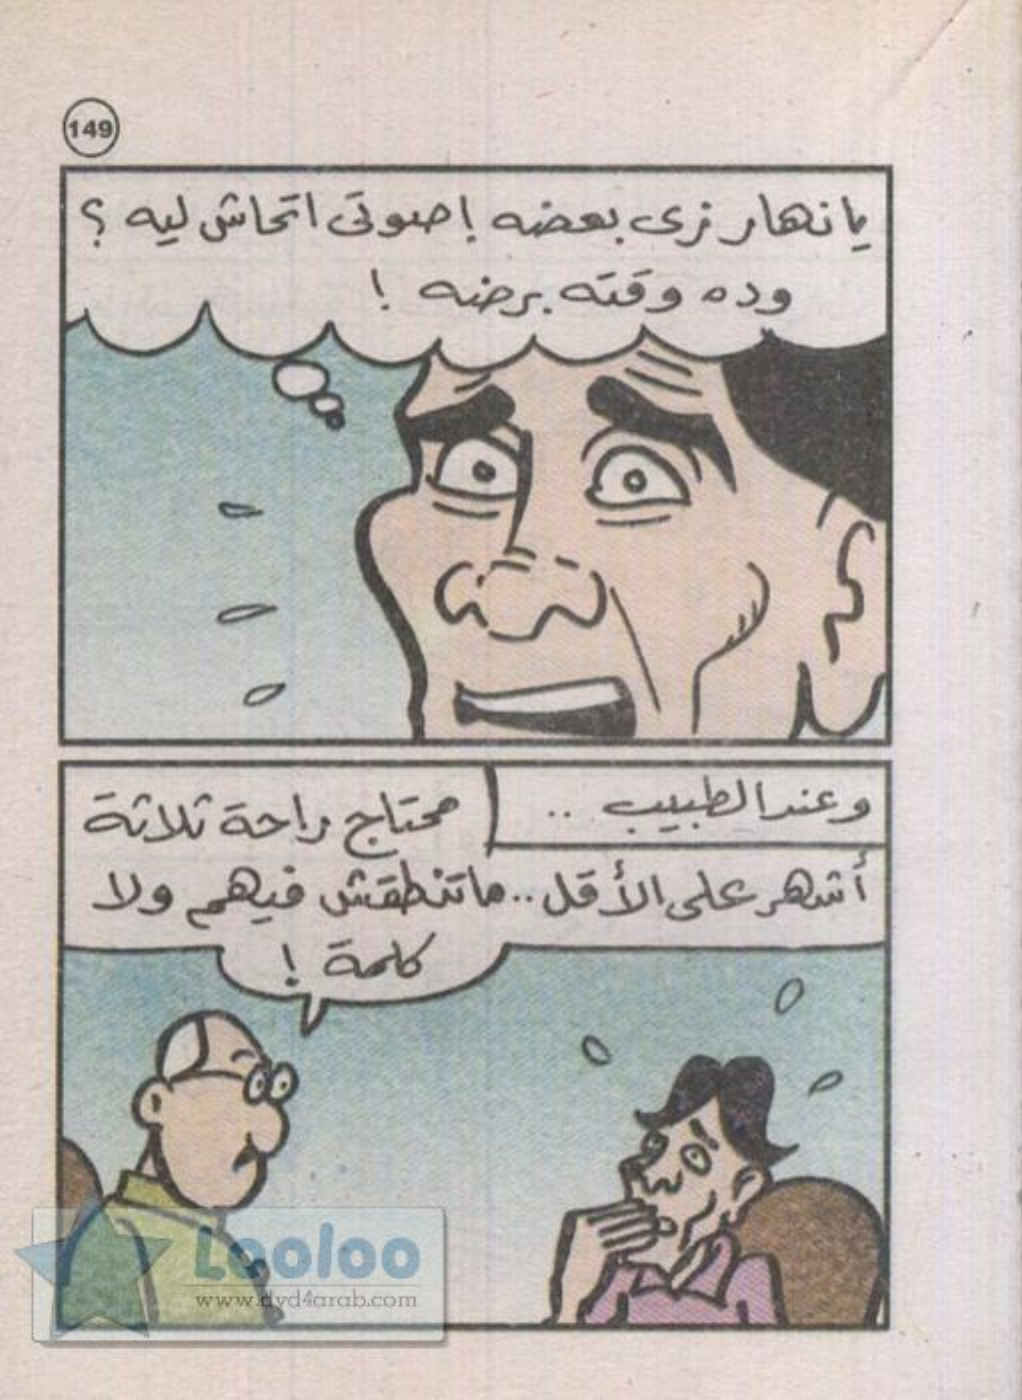 149
يا نهار زى بعضه ! صوتى اتحاش ليه ؟
وده وقته برضه !
وعند الطبيب ..
محتاج راحة ثلاثة
أشهر على الأقل .. ماتنطقش فيهم ولا
كلمة !
Looloo
www.dyd4arab.com